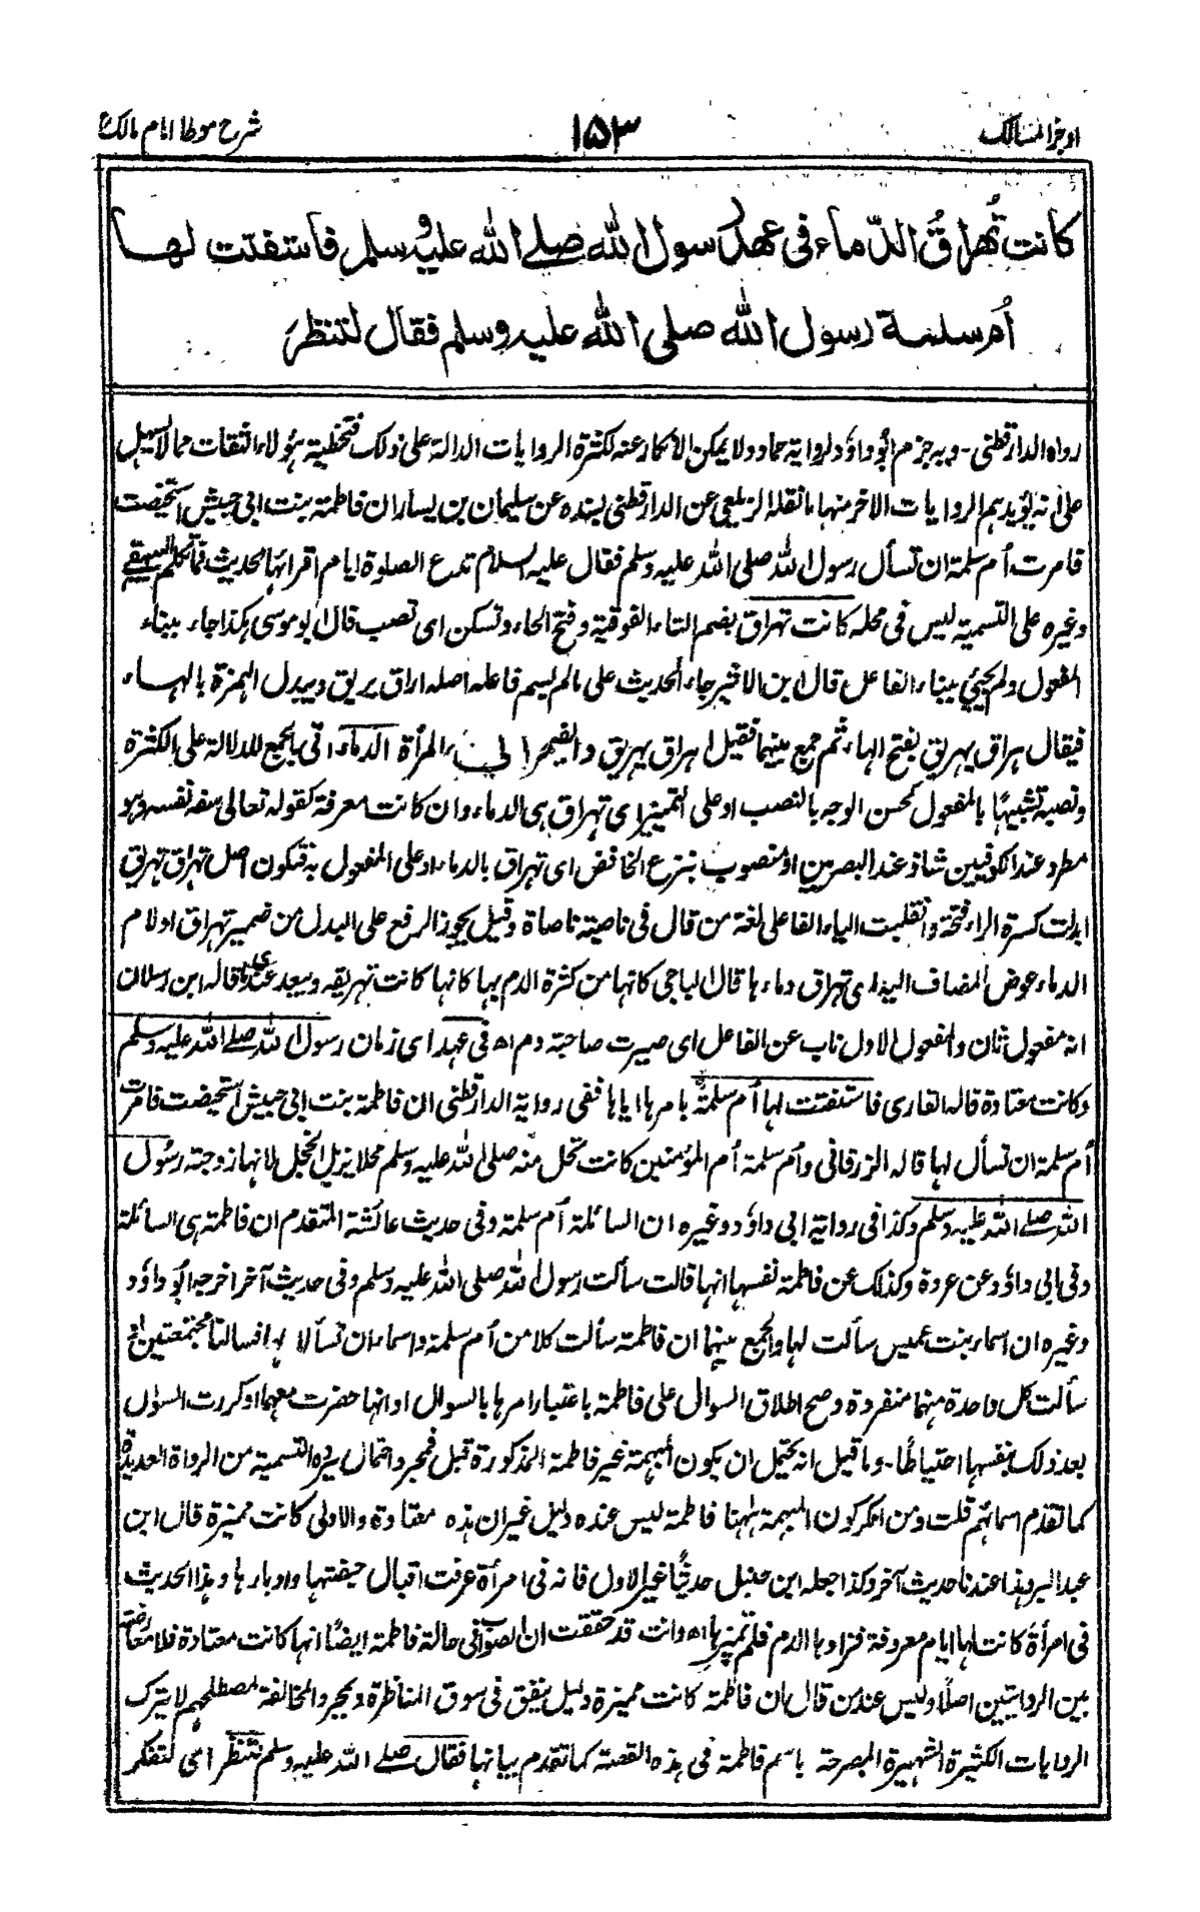 اوجز المسالك ١٥٣ شرح موطا امام مالك
كانت تُهراقُ الدّماء فى عهد رسول الله صلے الله عليه وسلم فاستفتت لها
اُم سلمة رسول الله صلى الله عليه وسلم فقال لتنظر
رواه الدارقطنى - وبه جزم ابو داؤد لرواية حماد ولا يمكن الانكار عنه لكثرة الروايات الدالة على ذلك فتخطية هؤلاء الثقات مما لا يسهل
على انه يؤيدهم الروايات الاخر منها ما نقله الزيلعى عن الدارقطنى بسنده عن سليمان بن يسار ان فاطمة بنت ابى حبيش استحيضت
فامرت أم سلمة ان تسأل رسول الله صلى الله عليه وسلم فقال عليه السلام تدع الصلوة ايام اقرائها الحديث فما تكلم البيهقے
وغيره على التسمية ليس فى محله كانت تهراق بضم التاء الفوقية وفتح الهاء وتسكن اى تصب قال ابو موسى هكذا جاء ببناء
المفعول ولم يجئ ببناء الفاعل قال ابن الاثير جاء الحديث على مالم يسم فاعله اصله اراق يريق ويبدل الهمزة بالهاء
فيقال هراق يهريق بفتح الهاء ثم جمع بينهما فقيل اهراق يهريق والضمير الى المرأة الدماء اتى بالجمع للدلالة على الكثرة
ونصبه تشبيهًا بالمفعول كحسن الوجه بالنصب او على التميز اى تهراق هى الدماء وان كانت معرفة كقوله تعالى سفه نفسه وهو
مطرد عند الكوفيين شاذ عند البصرين او منصوب بنزع الخافض اى تهراق بالدماء او على المفعول به فتكون اصل تهراق تهريق
ابدلت كسرة الراء فتحة وانقلبت الياء الفا على لغة من قال فى ناصية ناصاة وقيل يجوز الرفع على البدل من ضمير تهراق او لام
الدماء عوض المضاف اليه اى تهراق دماءها قال الباجى كانها من كثرة الدم بها كانها كانت تهريقه وبعد عندى ما قاله ابن رسلان
انه مفعول ثان والمفعول الاول ناب عن الفاعل اى صيرت صاحبة دم اه فى عهد اى زمان رسول الله صلے الله عليه وسلم
وكانت معتادة قاله القارى فاستفتت لها أم سلمة بامرها اياها ففى رواية الدارقطنى ان فاطمة بنت ابى حبيش استحيضت فامرت
أم سلمة ان تسأل لها قاله الزرقانى وأم سلمة أم المؤمنين كانت تحل منه صلى الله عليه وسلم محلا يزيل الخجل لانها زوجته رسول
الله صلے الله عليه وسلم وكذا فى رواية ابى داؤد وغيره ان السائلة أم سلمة وفى حديث عائشة المتقدم ان فاطمة هى السائلة
وفى ابى داؤد عن عروة وكذلك عن فاطمة نفسها انها قالت سألت رسول الله صلى الله عليه وسلم وفى حديث آخر اخرجه ابو داؤد
وغيره ان اسماء بنت عميس سألت لها والجمع بينهما ان فاطمة سألت كلا من أم سلمة واسماء ان تسألا لها فسالتا مجتمعتين او
سألت كل واحدة منهما منفردة وصح اطلاق السوال على فاطمة باعتبار امرها بالسوال او انها حضرت معهما او كررت السوال
بعد ذلك بنفسها احتياطًا - وما قيل انه يحتمل ان يكون المبهمة غير فاطمة المذكورة قبل فمجرد احتمال يرده التسمية من الرواة العديدة
كما تقدم اسمائهم قلت ومن انكر كون المبهمة ههنا فاطمة ليس عنده دليل غير ان هذه معتادة والاولى كانت مميزة قال ابن
عبد البر وهذا عندنا حديث آخر وكذا جعله ابن حنبل حديثًا غير الاول فانه فى امرأة عرفت اقبال حيضتها وادبارها وهذا الحديث
فى امرأة كانت لها ايام معروفة فزادها الدم فلم تميزها اه وانت قد حققت ان الصواب فى حالة فاطمة ايضًا انها كانت معتادة فلا معارضة
بين الروايتين اصلًا وليس عند من قال ان فاطمة كانت مميزة دليل ينفق فى سوق المناظرة وبمجرد المخالفة لمصطلحهم لا يترك
الروايات الكثيرة الشهيرة المصرحة باسم فاطمة فى هذه القصة كما تقدم بيانها فقال صلے الله عليه وسلم لتنظر اى لتفكر